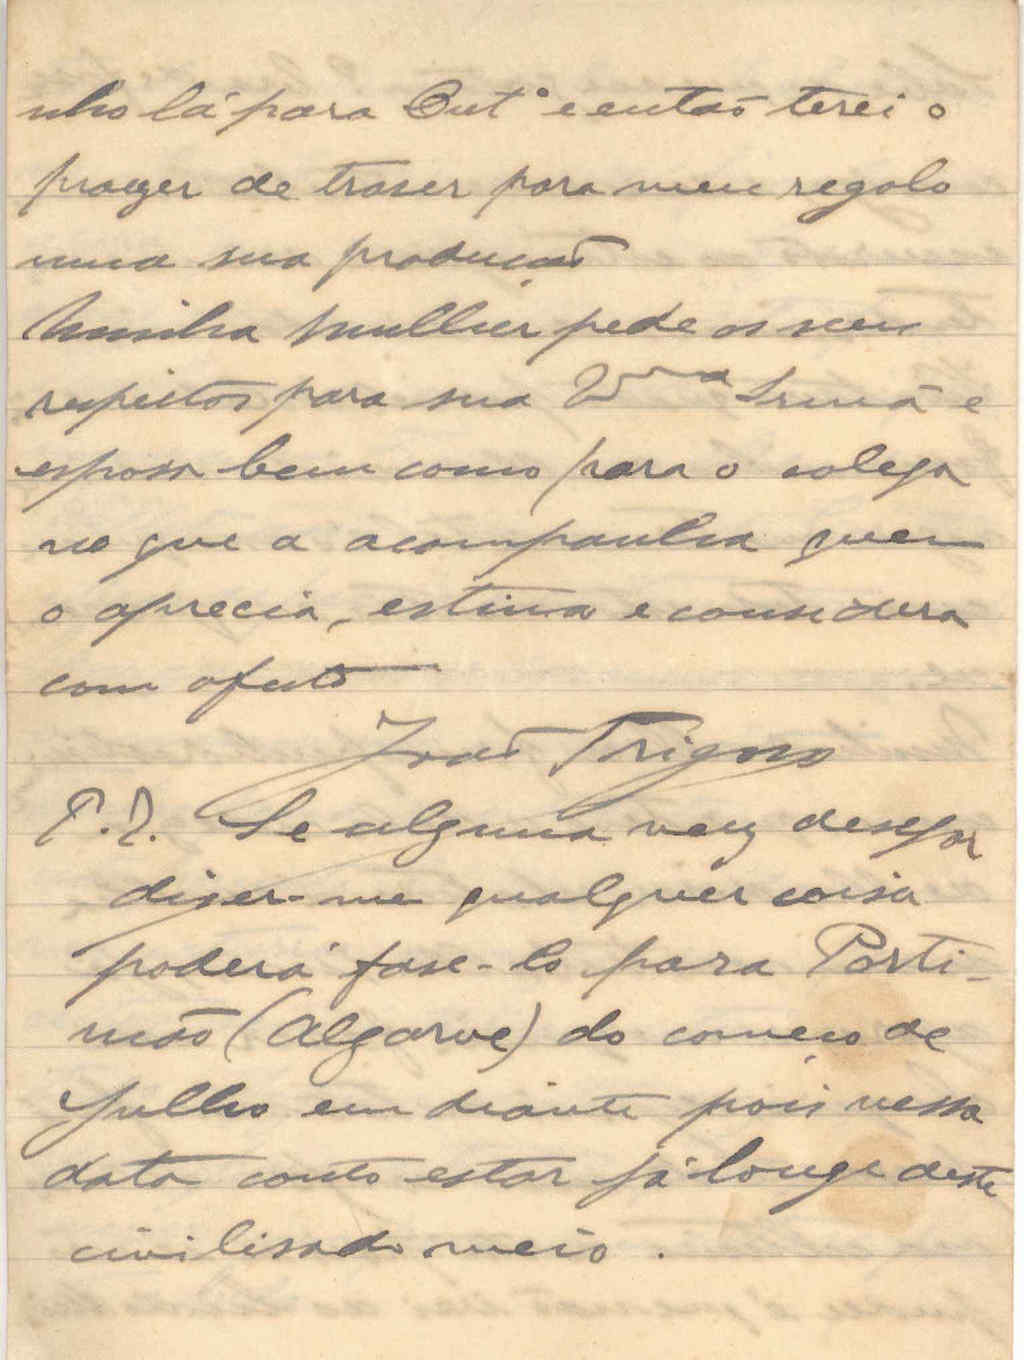 nho lá para Outº e então terei o
prazer de traser para meu regalo
uma sua producção
Minha mulher pede os seus
respeitos para sua Irmã e
esposa bem como para o colega
no que a acompanha quem
o aprecia, estima e considera
com afecto
João Trigoso
P.S. Se alguma vez desejar
dizer-me qualquer coisa
poderá fase-lo para Porti-
mão (Algarve) do começo de
Julho em diante pois nessa
data conto estar já longe deste
civilisado meio.